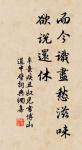 而今識盡愁滋味
欲說還休
辛棄疾醜奴兒書博山
道中壁詞與獨書